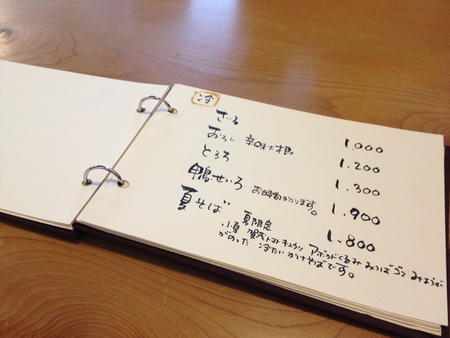 冷
せいろ 1,000
おろし 辛味大根 1,200
とろろ 1,300
鴨せいろ お時間かかります。 1,900
夏そば 夏限定 1,800
小夏 賀茂トマト キュウリ アボカド くるみ みつば ゴマ みょうが
がのった 冷たいかけそばです。